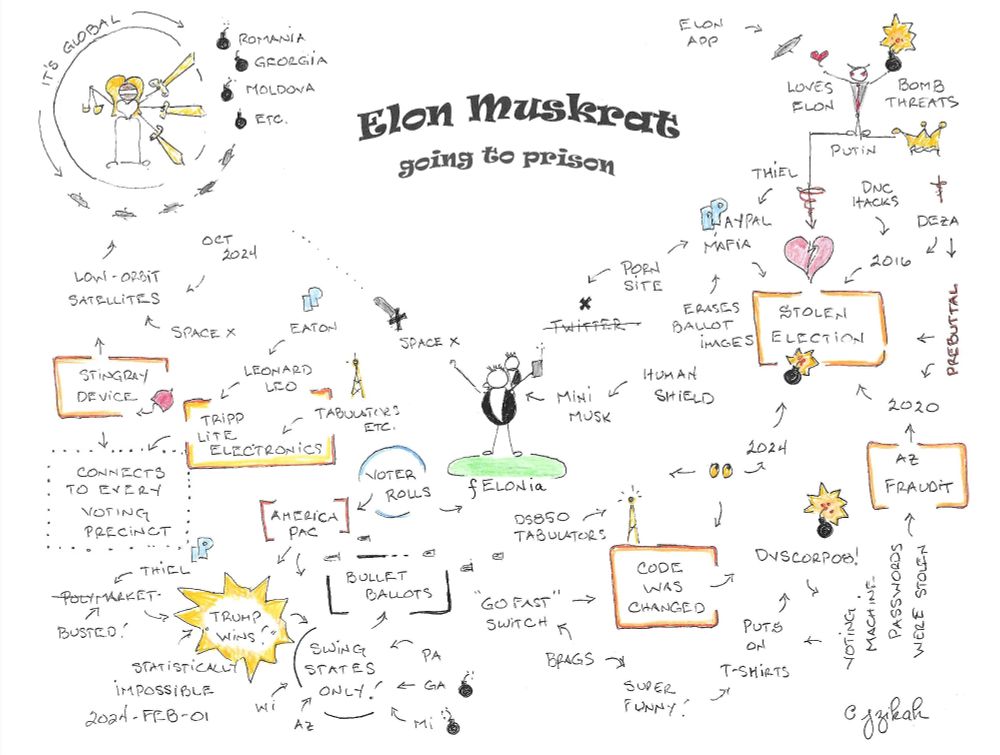 IT'S GLOBAL
ROMANIA
GEORGIA
MOLDOVA
ETC.
Elon Muskrat
going to prison
ELON
APP
LOVES
ELON
BOMB
THREATS
PUTIN
THIEL
PAYPAL
MAFIA
DNC
HACKS
DEZA
PREBUTTAL
2016
OCT
2024
LOW-ORBIT
SATELLITES
SPACE X
EATON
LEONARD
LEO
STINGRAY
DEVICE
TRIPP
LITE
ELECTRONICS
TABULATORS
ETC.
CONNECTS
TO EVERY
VOTING
PRECINCT
SPACE X
PORN
SITE
TWITTER
ERASES
BALLOT
IMAGES
STOLEN
ELECTION
MINI
MUSK
HUMAN
SHIELD
fELONia
2020
2024
AZ
FRAUDIT
VOTER
ROLLS
AMERICA
PAC
BULLET
BALLOTS
THIEL
POLYMARKET
BUSTED!
"TRUMP
WINS!"
STATISTICALLY
IMPOSSIBLE
2024-FEB-01
SWING
STATES
ONLY!
PA
GA
MI
WI
AZ
DS850
TABULATORS
CODE
WAS
CHANGED
"GO FAST"
SWITCH
BRAGS
SUPER
FUNNY!
PUTS
ON
T-SHIRTS
DVSCORP08!
VOTING
MACHINE
PASSWORDS
WERE STOLEN
© jzikah